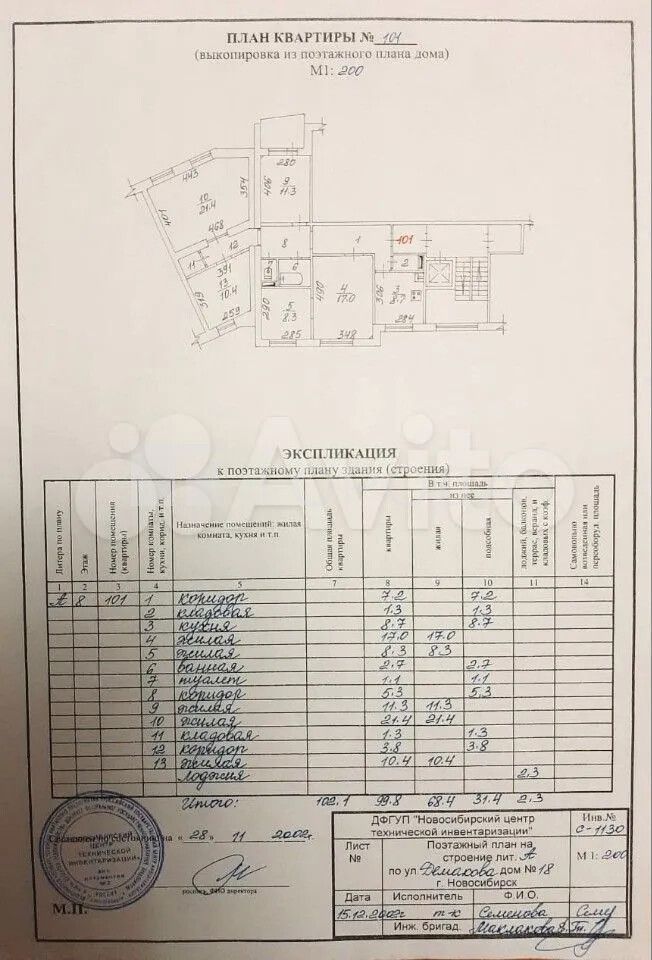 ПЛАН КВАРТИРЫ № 101
(выкопировка из поэтажного плана дома)
М1: 200
280
9
11.3
406
443
10
21.4
354
407
468
12
11
391
13
10.4
319
259
8
1
101
2
7
6
5
8.3
290
285
4
17.0
400
348
306
3
8.7
284
Avito
ЭКСПЛИКАЦИЯ
к поэтажному плану здания (строения)
Литера по плану
Этаж
Номер помещения (квартиры)
Номер комнаты, кухни, корид. и т.п.
Назначение помещений: жилая комната, кухня и т.п.
Общая площадь квартиры
В т.ч. площадь
квартиры
из нее
жилая
подсобная
лоджий, балконов, террас, веранд и кладовых с коэф.
Самовольно возведенная или переоборуд. площадь
1 2 3 4 5 7 8 9 10 11 14
А 8 101 1 коридор 7.2 7.2
2 кладовая 1.3 1.3
3 кухня 8.7 8.7
4 жилая 17.0 17.0
5 жилая 8.3 8.3
6 ванная 2.7 2.7
7 туалет 1.1 1.1
8 коридор 5.3 5.3
9 жилая 11.3 11.3
10 жилая 21.4 21.4
11 кладовая 1.3 1.3
12 коридор 3.8 3.8
13 жилая 10.4 10.4
лоджия 2.3
Итого: 102.1 99.8 68.4 31.4 2.3
Составлен по состоянию на « 28 » 11 2002г.
НОВОСИБИРСКИЙ
ЦЕНТР
ТЕХНИЧЕСКОЙ
ИНВЕНТАРИЗАЦИИ
ДЛЯ
ДОКУМЕНТОВ
№ 2
подпись, ФИО директора
М.П.
ДФГУП "Новосибирский центр технической инвентаризации"
Инв.№
С-1130
Лист
№
Поэтажный план на
строение лит. А
по ул. Демакова, дом № 18
г. Новосибирск
М 1: 200
Дата Исполнитель Ф.И.О.
15.12.2002г т-к Семенова Сему
Инж. бригад. Маклакова